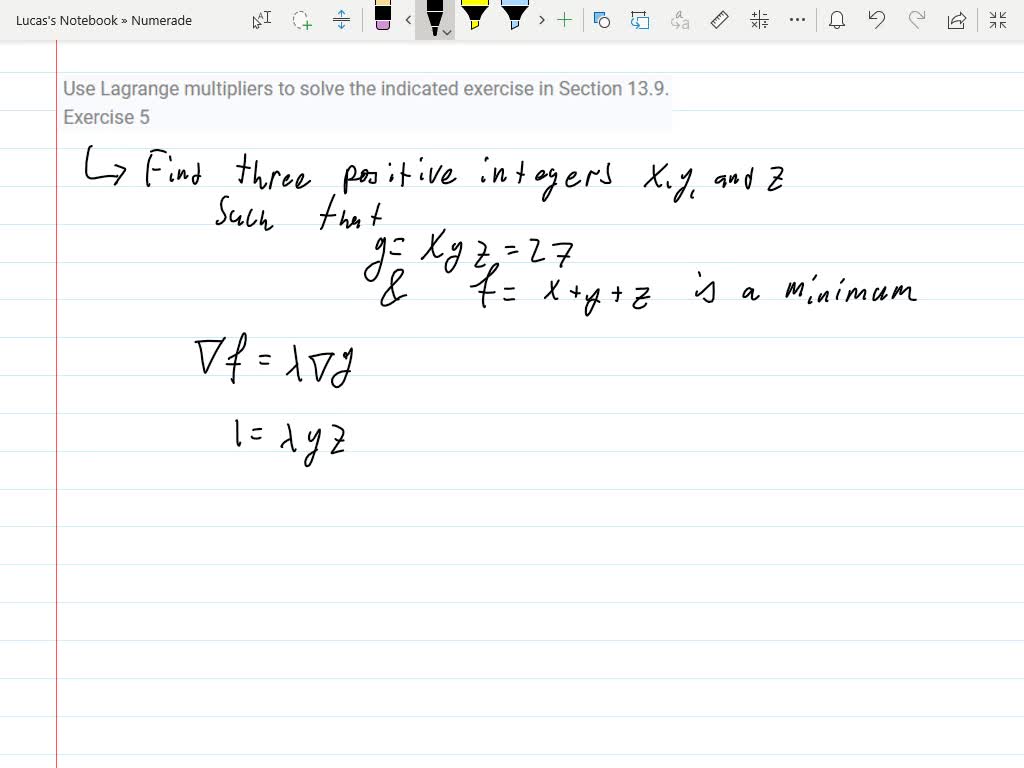 Lucas's Notebook » Numerade
Use Lagrange multipliers to solve the indicated exercise in Section 13.9.
Exercise 5
↳ Find three positive integers x, y, and z
Such that
g = xyz = 27
& f = x + y + z is a minimum
∇f = λ∇g
1 = λyz